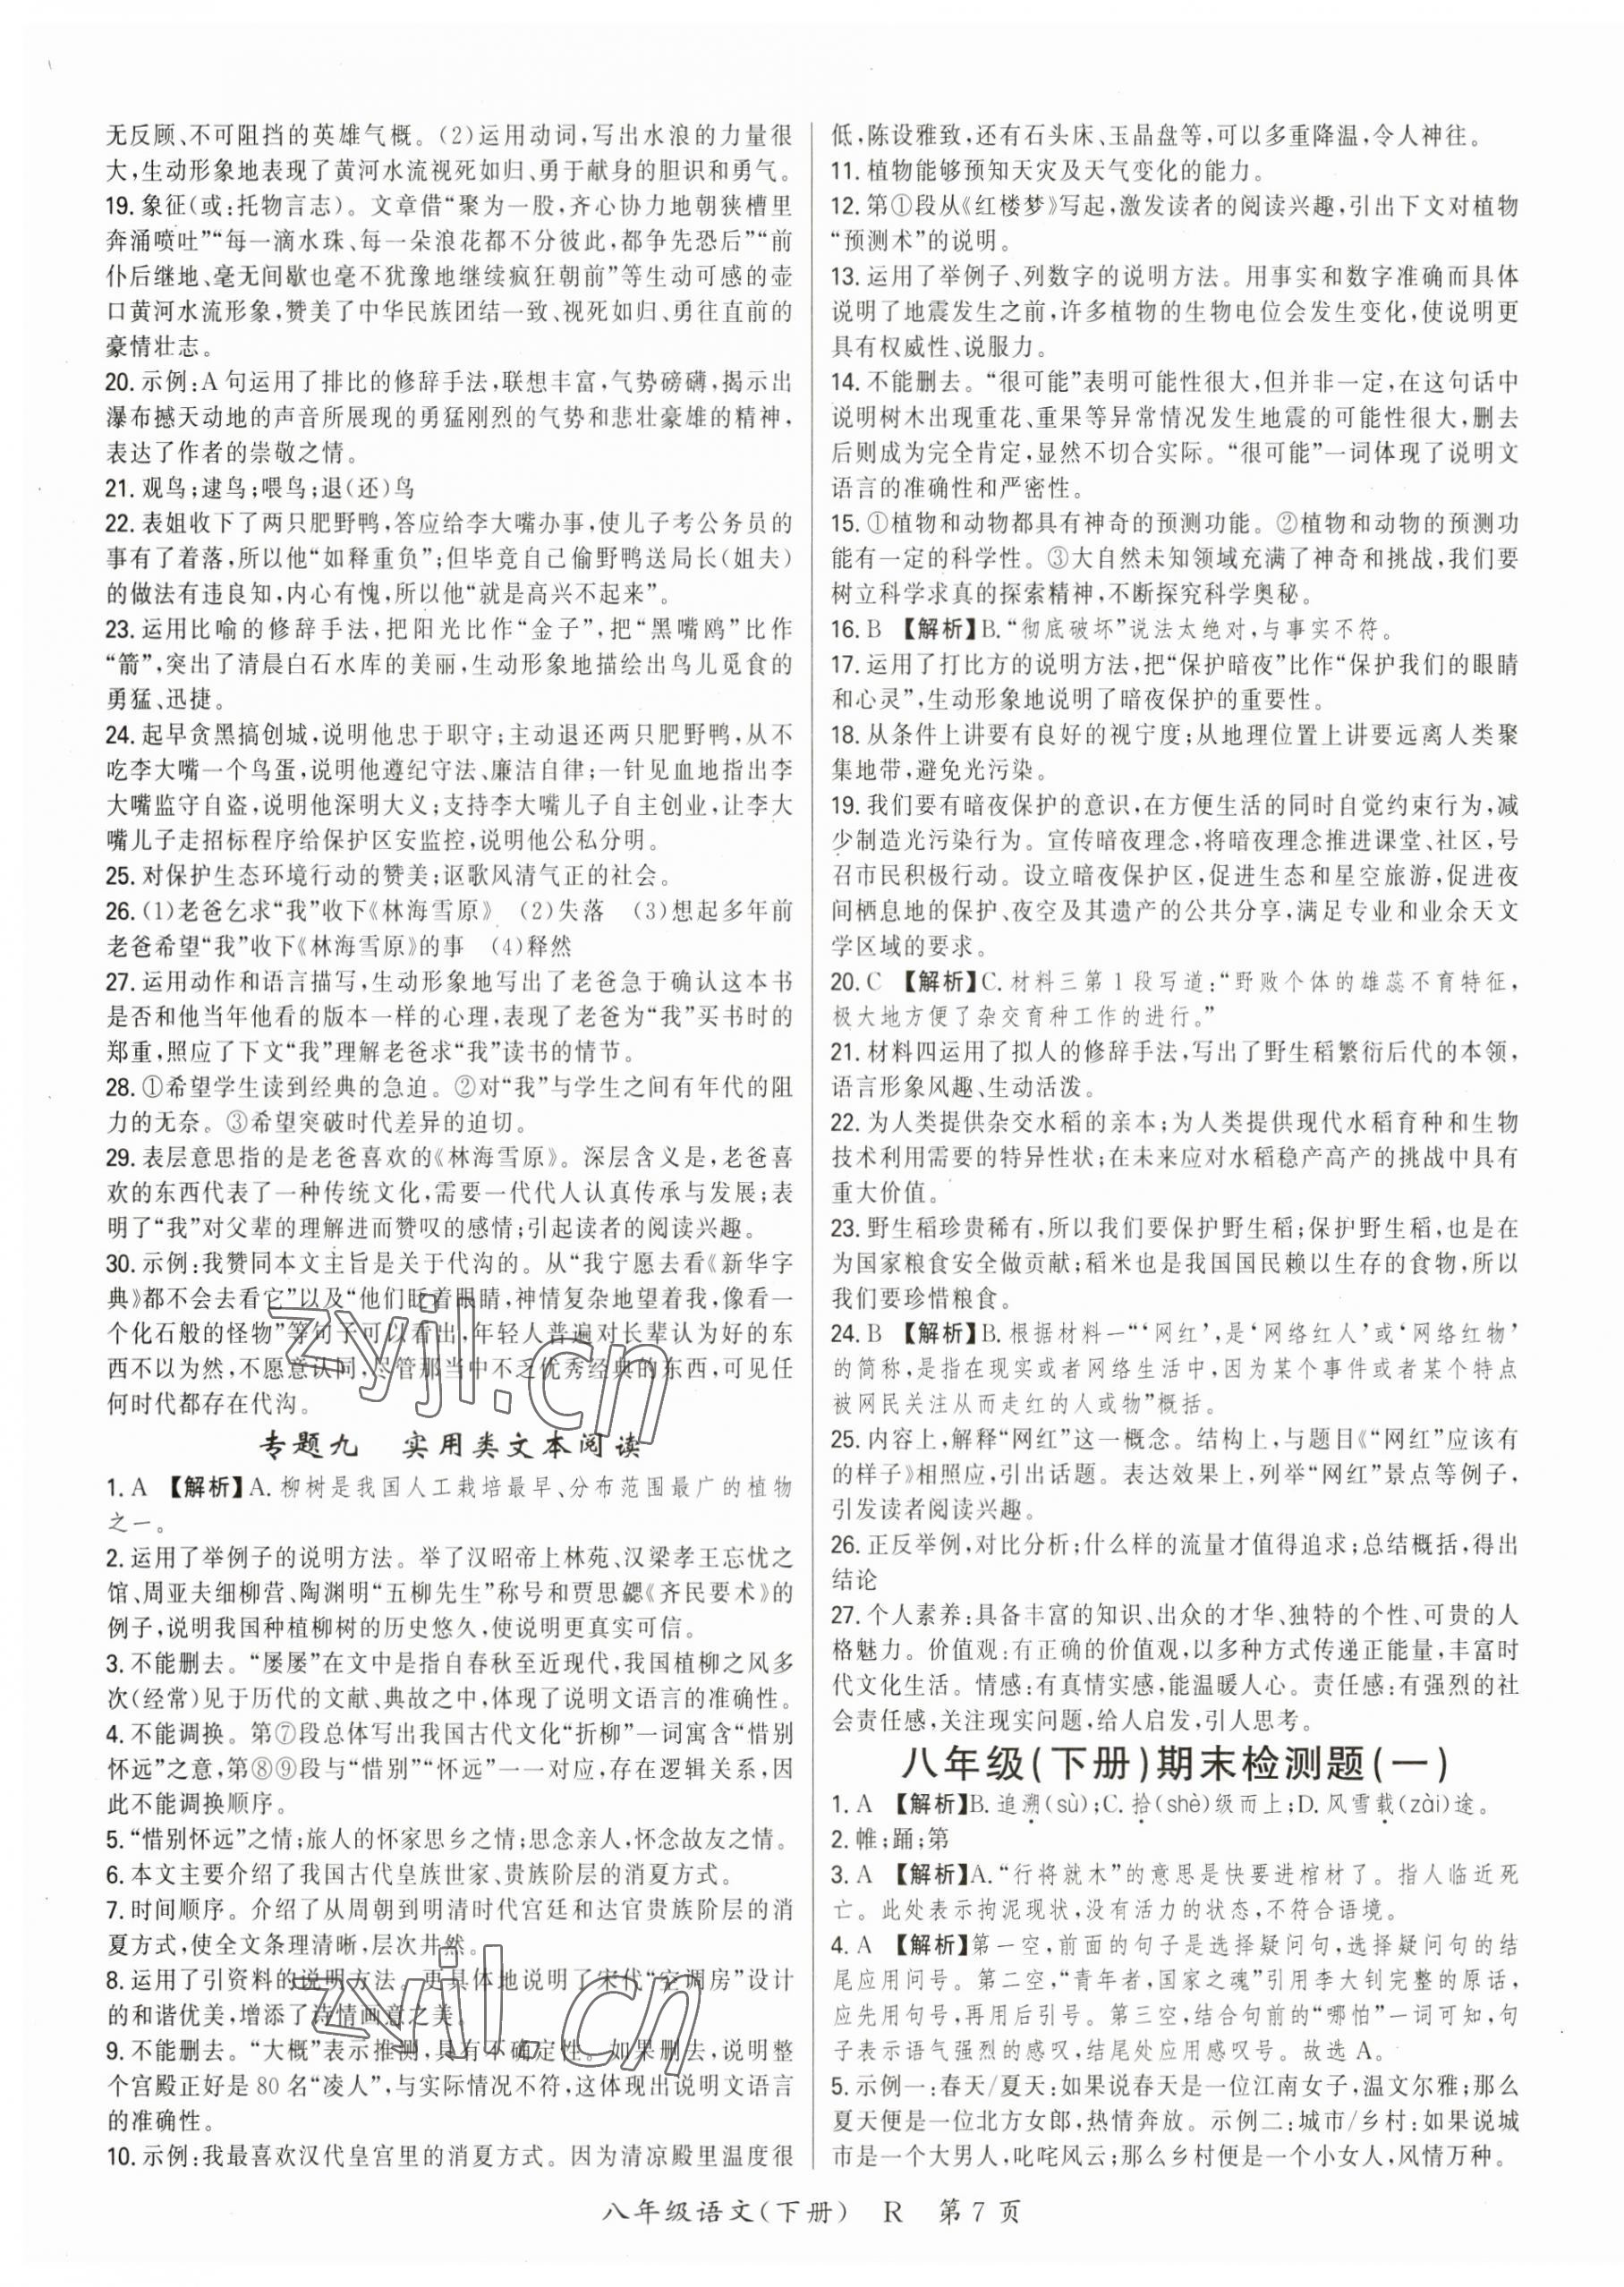 无反顾、不可阻挡的英雄气概。(2)运用动词,写出水浪的力量很
大,生动形象地表现了黄河水流视死如归、勇于献身的胆识和勇气。
19. 象征(或:托物言志)。文章借“聚为一股,齐心协力地朝狭槽里
奔涌喷吐”“每一滴水珠、每一朵浪花都不分彼此,都争先恐后”“前
仆后继地、毫无间歇也毫不犹豫地继续疯狂朝前”等生动可感的壶
口黄河水流形象,赞美了中华民族团结一致、视死如归、勇往直前的
豪情壮志。
20. 示例:A 句运用了排比的修辞手法,联想丰富,气势磅礴,揭示出
瀑布撼天动地的声音所展现的勇猛刚烈的气势和悲壮豪雄的精神,
表达了作者的崇敬之情。
21. 观鸟;逮鸟;喂鸟;退(还)鸟
22. 表姐收下了两只肥野鸭,答应给李大嘴办事,使儿子考公务员的
事有了着落,所以他“如释重负”;但毕竟自己偷野鸭送局长(姐夫)
的做法有违良知,内心有愧,所以他“就是高兴不起来”。
23. 运用比喻的修辞手法,把阳光比作“金子”,把“黑嘴鸥”比作
“箭”,突出了清晨白石水库的美丽,生动形象地描绘出鸟儿觅食的
勇猛、迅捷。
24. 起早贪黑搞创城,说明他忠于职守;主动退还两只肥野鸭,从不
吃李大嘴一个鸟蛋,说明他遵纪守法、廉洁自律;一针见血地指出李
大嘴监守自盗,说明他深明大义;支持李大嘴儿子自主创业,让李大
嘴儿子走招标程序给保护区安监控,说明他公私分明。
25. 对保护生态环境行动的赞美;讴歌风清气正的社会。
26. (1)老爸乞求“我”收下《林海雪原》 (2)失落 (3)想起多年前
老爸希望“我”收下《林海雪原》的事 (4)释然
27. 运用动作和语言描写,生动形象地写出了老爸急于确认这本书
是否和他当年他看的版本一样的心理,表现了老爸为“我”买书时的
郑重,照应了下文“我”理解老爸求“我”读书的情节。
28. ①希望学生读到经典的急迫。②对“我”与学生之间有年代的阻
力的无奈。③希望突破时代差异的迫切。
29. 表层意思指的是老爸喜欢的《林海雪原》。深层含义是,老爸喜
欢的东西代表了一种传统文化,需要一代代人认真传承与发展;表
明了“我”对父辈的理解进而赞叹的感情;引起读者的阅读兴趣。
30. 示例:我赞同本文主旨是关于代沟的。从“我宁愿去看《新华字
典》都不会去看它”以及“他们眨着眼睛,神情复杂地望着我,像看一
个化石般的怪物”等句子可以看出,年轻人普遍对长辈认为好的东
西不以为然,不愿意认同,尽管那当中不乏优秀经典的东西,可见任
何时代都存在代沟。
专题九 实用类文本阅读
1. A 【解析】A. 柳树是我国人工栽培最早、分布范围最广的植物
之一。
2. 运用了举例子的说明方法。举了汉昭帝上林苑、汉梁孝王忘忧之
馆、周亚夫细柳营、陶渊明“五柳先生”称号和贾思勰《齐民要术》的
例子,说明我国种植柳树的历史悠久,使说明更真实可信。
3. 不能删去。“屡屡”在文中是指自春秋至近现代,我国植柳之风多
次(经常)见于历代的文献、典故之中,体现了说明文语言的准确性。
4. 不能调换。第⑦段总体写出我国古代文化“折柳”一词寓含“惜别
怀远”之意,第⑧⑨段与“惜别”“怀远”一一对应,存在逻辑关系,因
此不能调换顺序。
5. “惜别怀远”之情;旅人的怀家思乡之情;思念亲人,怀念故友之情。
6. 本文主要介绍了我国古代皇族世家、贵族阶层的消夏方式。
7. 时间顺序。介绍了从周朝到明清时代宫廷和达官贵族阶层的消
夏方式,使全文条理清晰,层次井然。
8. 运用了引资料的说明方法。更具体地说明了宋代“空调房”设计
的和谐优美,增添了诗情画意之美。
9. 不能删去。“大概”表示推测,具有不确定性。如果删去,说明整
个宫殿正好是 80 名“凌人”,与实际情况不符,这体现出说明文语言
的准确性。
10. 示例:我最喜欢汉代皇宫里的消夏方式。因为清凉殿里温度很
低,陈设雅致,还有石头床、玉晶盘等,可以多重降温,令人神往。
11. 植物能够预知天灾及天气变化的能力。
12. 第①段从《红楼梦》写起,激发读者的阅读兴趣,引出下文对植物
“预测术”的说明。
13. 运用了举例子、列数字的说明方法。用事实和数字准确而具体
说明了地震发生之前,许多植物的生物电位会发生变化,使说明更
具有权威性、说服力。
14. 不能删去。“很可能”表明可能性很大,但并非一定,在这句话中
说明树木出现重花、重果等异常情况发生地震的可能性很大,删去
后则成为完全肯定,显然不切合实际。“很可能”一词体现了说明文
语言的准确性和严密性。
15. ①植物和动物都具有神奇的预测功能。②植物和动物的预测功
能有一定的科学性。③大自然未知领域充满了神奇和挑战,我们要
树立科学求真的探索精神,不断探究科学奥秘。
16. B 【解析】B. “彻底破坏”说法太绝对,与事实不符。
17. 运用了打比方的说明方法,把“保护暗夜”比作“保护我们的眼睛
和心灵”,生动形象地说明了暗夜保护的重要性。
18. 从条件上讲要有良好的视宁度;从地理位置上讲要远离人类聚
集地带,避免光污染。
19. 我们要有暗夜保护的意识,在方便生活的同时自觉约束行为,减
少制造光污染行为。宣传暗夜理念,将暗夜理念推进课堂、社区,号
召市民积极行动。设立暗夜保护区,促进生态和星空旅游,促进夜
间栖息地的保护、夜空及其遗产的公共分享,满足专业和业余天文
学区域的要求。
20. C 【解析】C. 材料三第 1 段写道:“野败个体的雄蕊不育特征,
极大地方便了杂交育种工作的进行。”
21. 材料四运用了拟人的修辞手法,写出了野生稻繁衍后代的本领,
语言形象风趣、生动活泼。
22. 为人类提供杂交水稻的亲本;为人类提供现代水稻育种和生物
技术利用需要的特异性状;在未来应对水稻稳产高产的挑战中具有
重大价值。
23. 野生稻珍贵稀有,所以我们要保护野生稻;保护野生稻,也是在
为国家粮食安全做贡献;稻米也是我国国民赖以生存的食物,所以
我们要珍惜粮食。
24. B 【解析】B. 根据材料一“‘网红’,是‘网络红人’或‘网络红物’
的简称,是指在现实或者网络生活中,因为某个事件或者某个特点
被网民关注从而走红的人或物”概括。
25. 内容上,解释“网红”这一概念。结构上,与题目《“网红”应该有
的样子》相照应,引出话题。表达效果上,列举“网红”景点等例子,
引发读者阅读兴趣。
26. 正反举例,对比分析;什么样的流量才值得追求;总结概括,得出
结论
27. 个人素养:具备丰富的知识、出众的才华、独特的个性、可贵的人
格魅力。价值观:有正确的价值观,以多种方式传递正能量,丰富时
代文化生活。情感:有真情实感,能温暖人心。责任感:有强烈的社
会责任感,关注现实问题,给人启发,引人思考。
八年级(下册)期末检测题(一)
1. A 【解析】B. 追溯(sù);C. 拾(shè)级而上;D. 风雪载(zài)途。
2. 帷;踊;第
3. A 【解析】A. “行将就木”的意思是快要进棺材了。指人临近死
亡。此处表示拘泥现状,没有活力的状态,不符合语境。
4. A 【解析】第一空,前面的句子是选择疑问句,选择疑问句的结
尾应用问号。第二空,“青年者,国家之魂”引用李大钊完整的原话,
应先用句号,再用后引号。第三空,结合句前的“哪怕”一词可知,句
子表示语气强烈的感叹,结尾处应用感叹号。故选 A。
5. 示例一:春天/夏天:如果说春天是一位江南女子,温文尔雅;那么
夏天便是一位北方女郎,热情奔放。示例二:城市/乡村:如果说城
市是一个大男人,叱咤风云;那么乡村便是一个小女人,风情万种。
八年级语文(下册) R 第 7 页
zyjl.cn
zyjl.cn